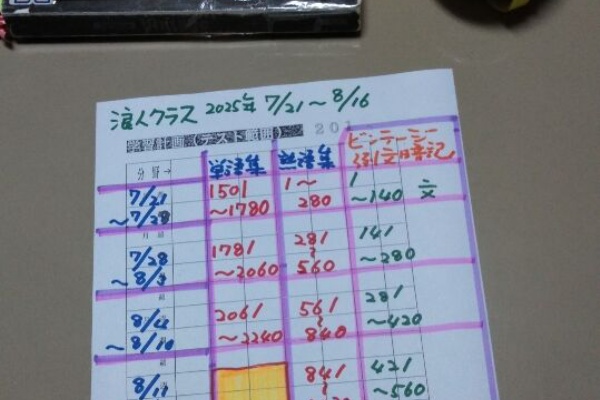 浪人クラス 2025年 7/21〜8/16
学習計画(テスト範囲) 201
分野→ 単語集 熟語集 ビンテージ
暗記
7/21 1501 1〜 1
〜7/28 〜1780 280 〜140 文
7/28 1781 281 141
〜8/3 〜2060 〜560 〜280
8/4 2061 561 281
〜8/10 〜2240 〜840 〜420
8/11 841 421
〜560